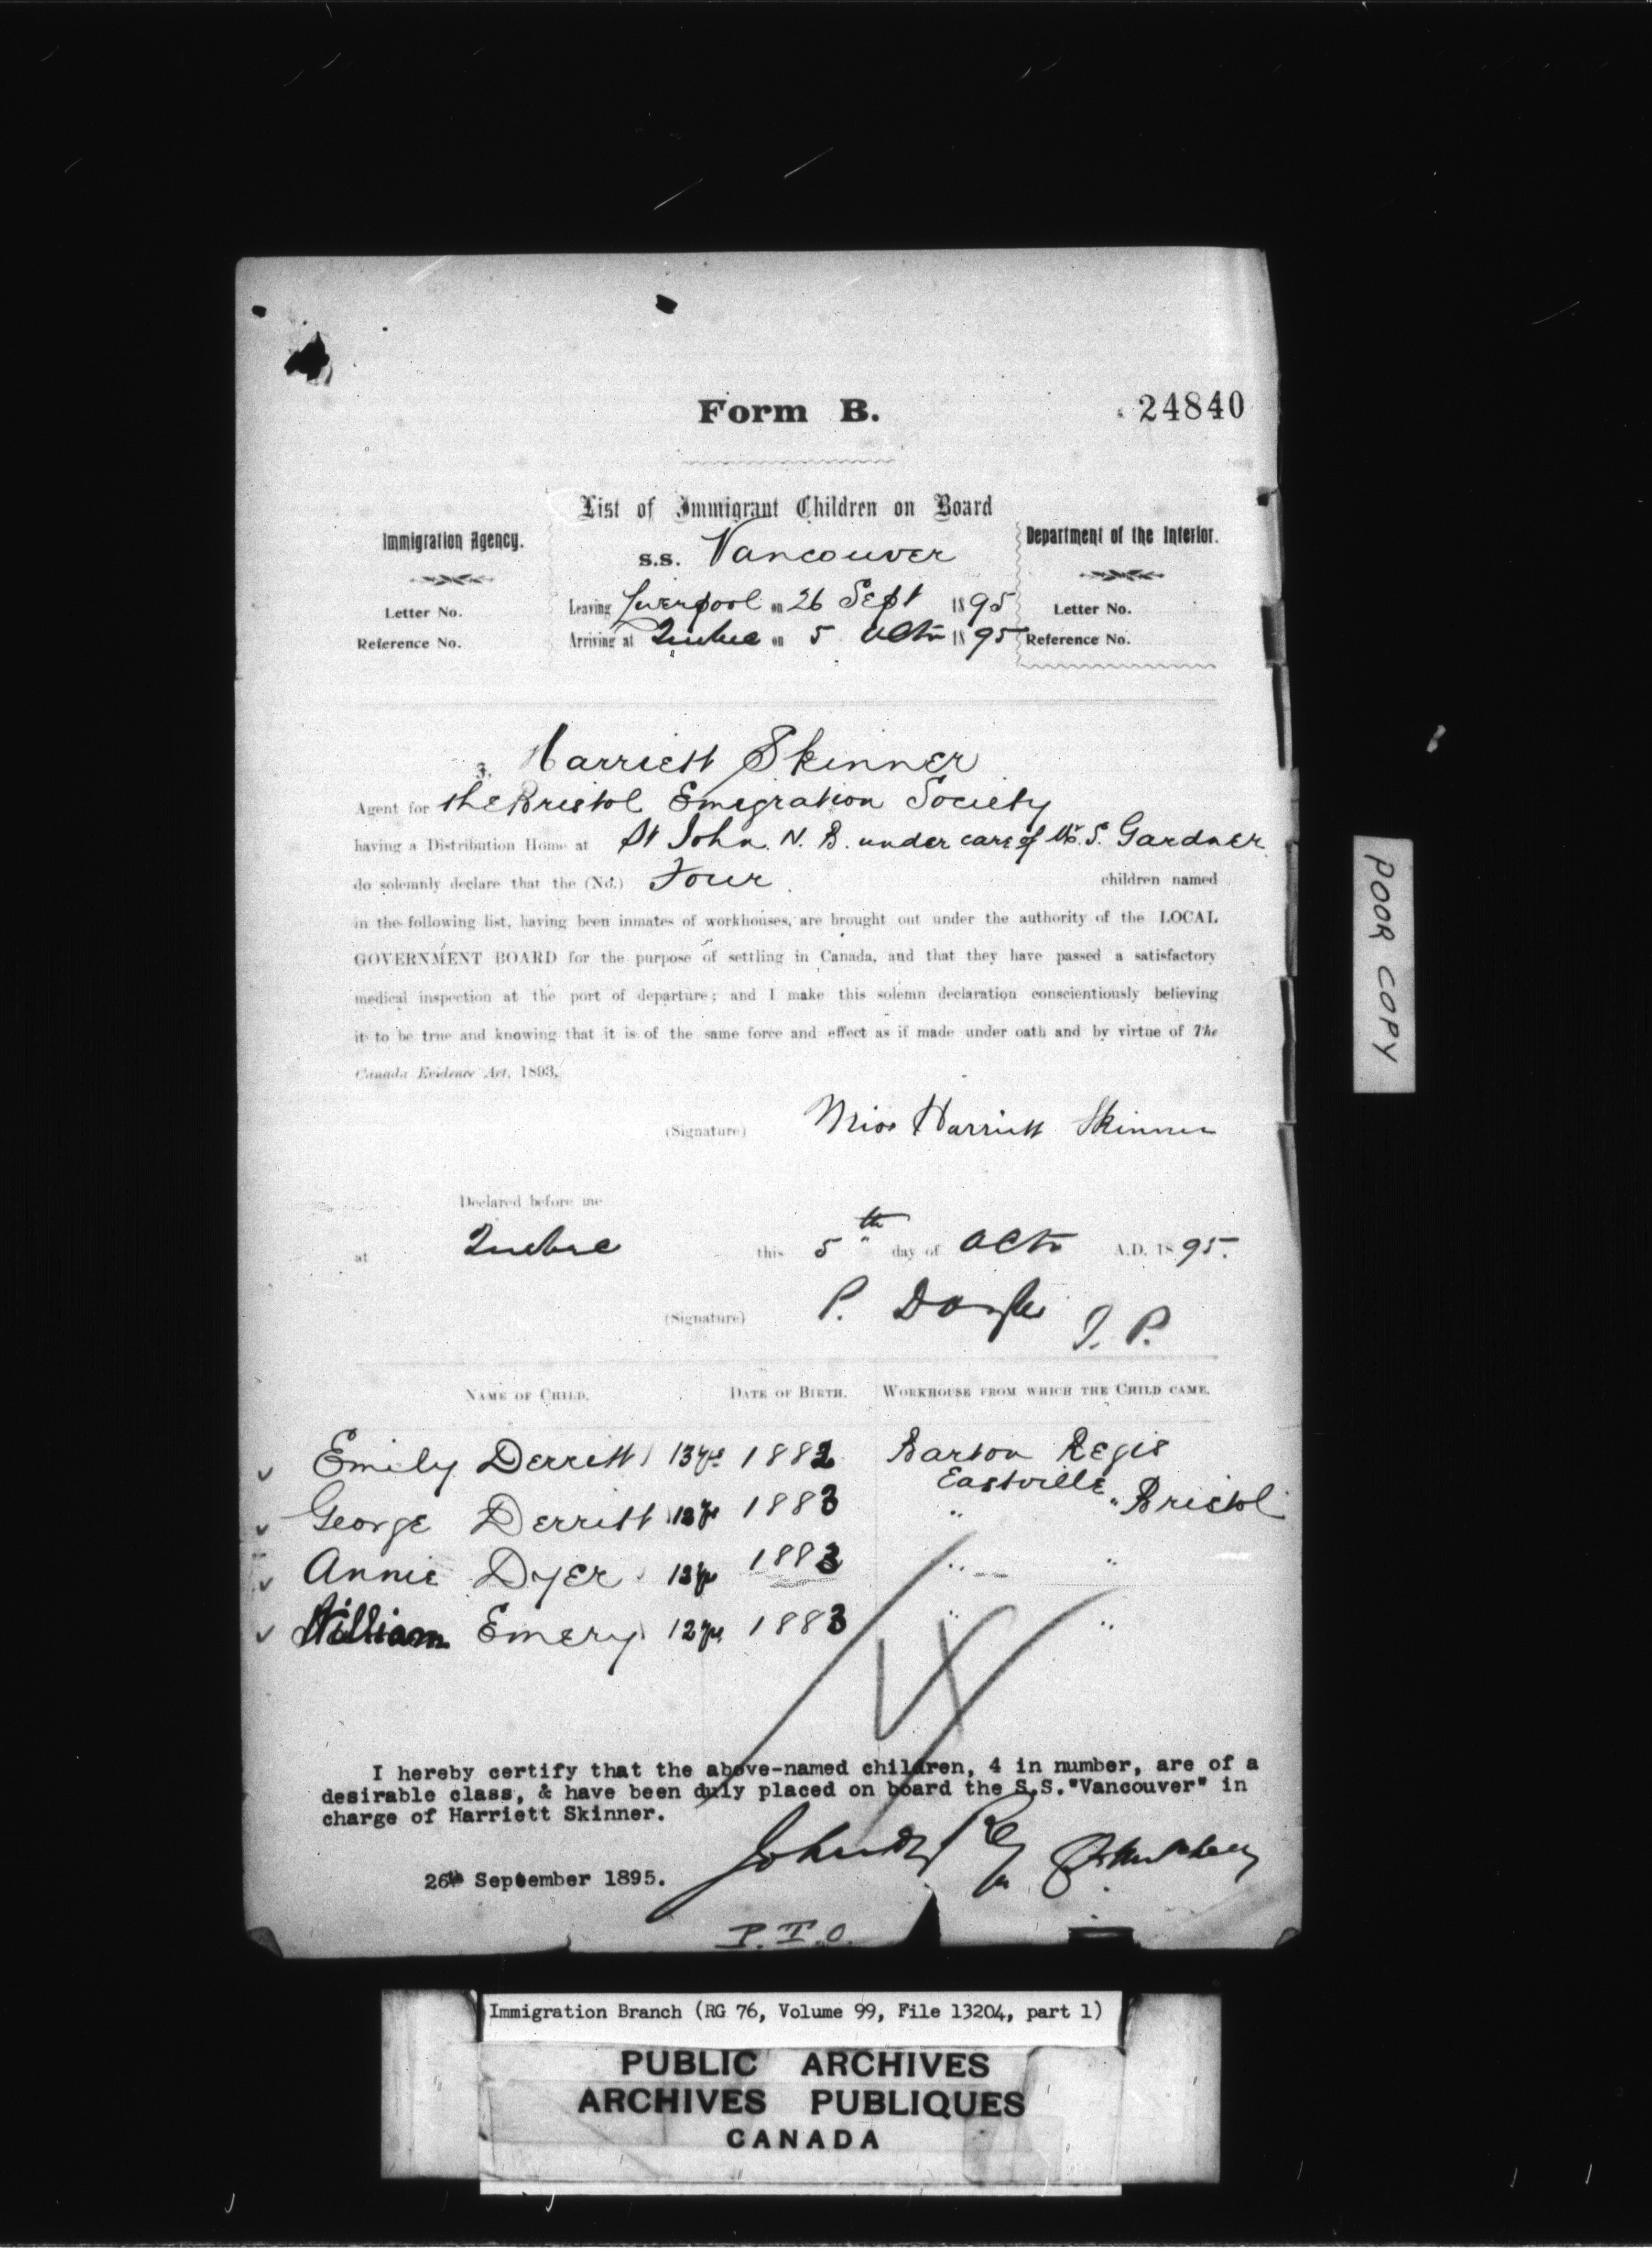 Form B.
24840
List of Immigrant Children on Board
Immigration Agency.
s.s. Vancouver
Department of the Interior.
Letter No.
Leaving Liverpool on 26 Sept 1895
Letter No.
Reference No.
Arriving at Quebec on 5 Octr 1895
Reference No.
I, Harriett Skinner
Agent for the Bristol Emigration Society
having a Distribution Home at St John. N. B. under care of Mr. S. Gardner
do solemnly declare that the (No.) Four children named
in the following list, having been inmates of workhouses, are brought out under the authority of the LOCAL
GOVERNMENT BOARD for the purpose of settling in Canada, and that they have passed a satisfactory
medical inspection at the port of departure; and I make this solemn declaration conscientiously believing
it to be true and knowing that it is of the same force and effect as if made under oath and by virtue of The
Canada Evidence Act, 1893.
(Signature) Miss Harriett Skinner
Declared before me
at Quebec this 5th day of Octr A.D. 1895.
(Signature) P. Doyle J. P.
NAME OF CHILD. DATE OF BIRTH. WORKHOUSE FROM WHICH THE CHILD CAME.
Emily Derritt 13 yrs 1882 Barton Regis
Eastville Bristol
George Derritt 12 yrs 1883 "  "
Annie Dyer 12 yrs 1883 "  "
William Emery 12 yrs 1883 "  "
4
I hereby certify that the above-named children, 4 in number, are of a
desirable class, & have been duly placed on board the S.S."Vancouver" in
charge of Harriett Skinner.
26th September 1895.
P.T.O.
POOR COPY
Immigration Branch (RG 76, Volume 99, File 13204, part 1)
PUBLIC ARCHIVES
ARCHIVES PUBLIQUES
CANADA